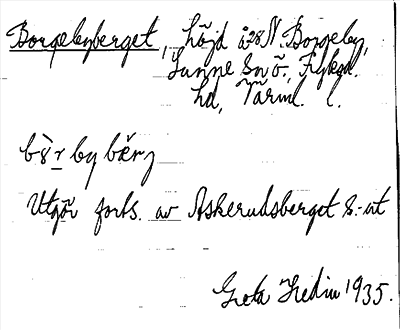 Borgebyberget, höjd å 28 N. Borgeby,
Sunne Sn ö., Fryksd.
hd, Värml. l.
Utgör forts. av Askerudsberget S.-ut
Greta Hedin 1935.